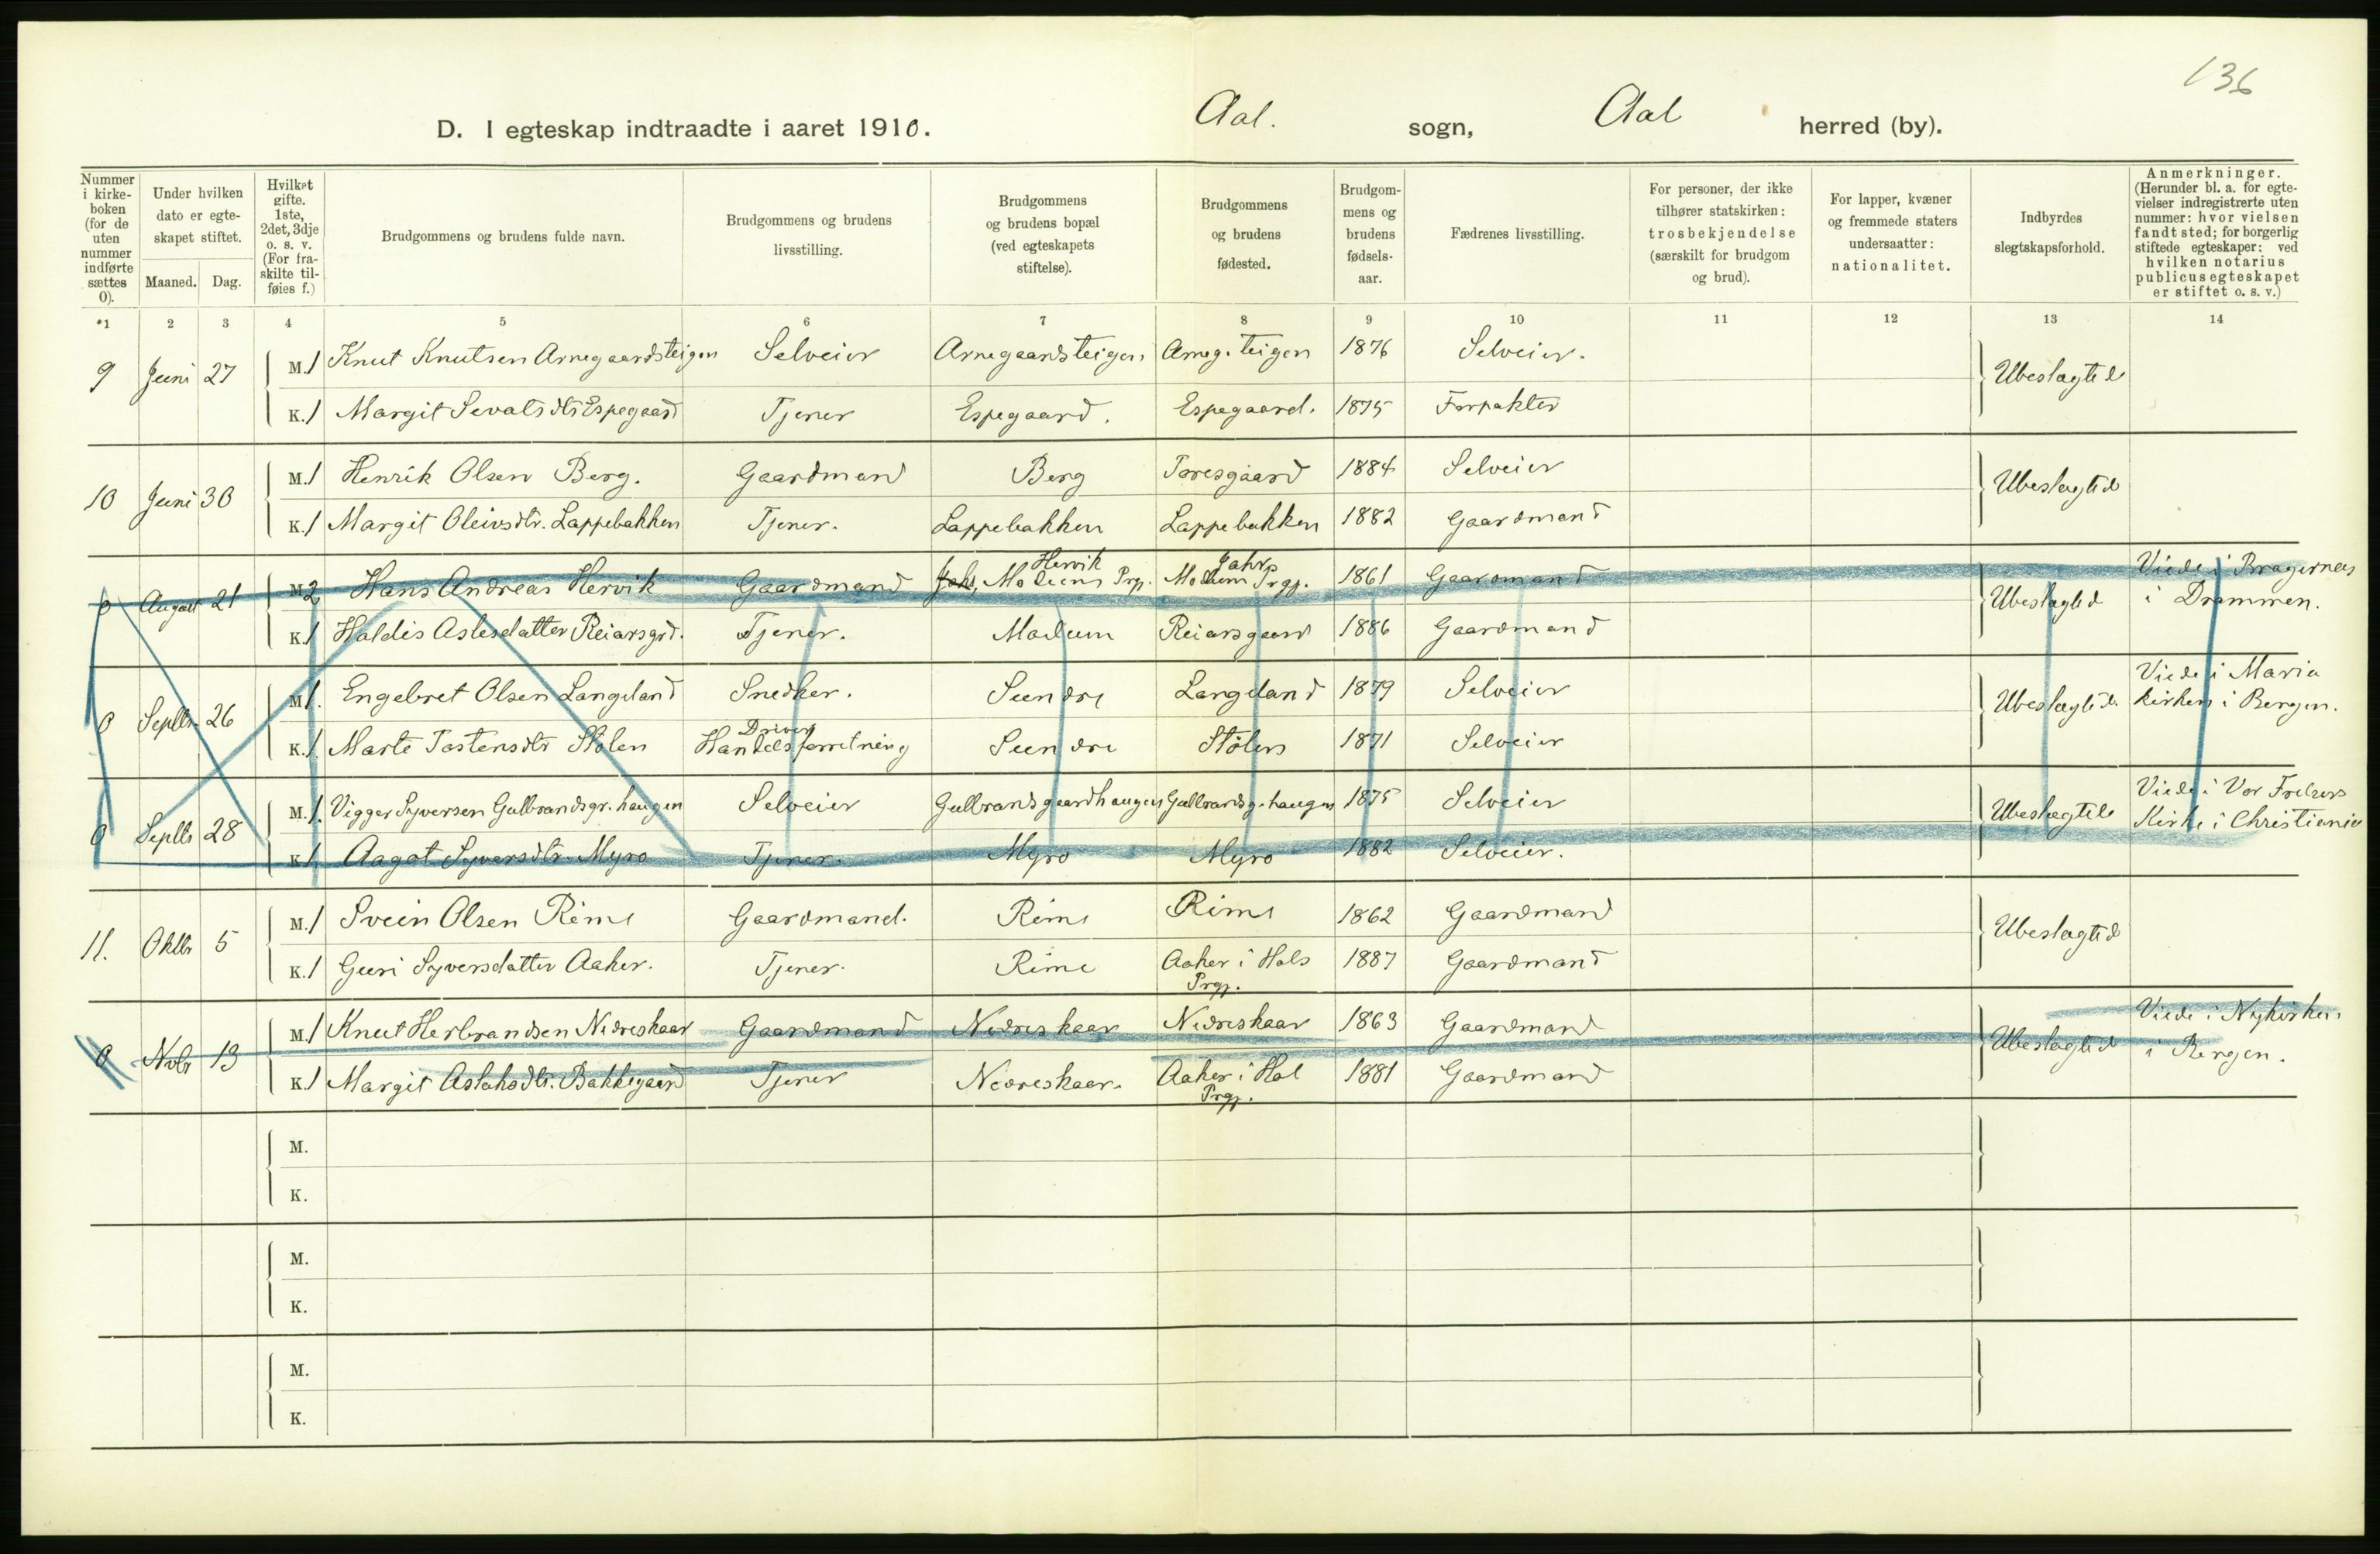 136
D. I egteskap indtraadte i aaret 1910. Aal. sogn, Aal herred (by).
Nummer i kirke-boken (for de uten nummer indførte sættes 0). | Under hvilken dato er egte-skapet stiftet. Maaned. Dag. | Hvilket gifte. 1ste, 2det, 3dje o. s. v. (For fra-skilte til-føies f.) | Brudgommens og brudens fulde navn. | Brudgommens og brudens livsstilling. | Brudgommens og brudens bopæl (ved egteskapets stiftelse). | Brudgommens og brudens fødested. | Brudgom-mens og brudens fødsels-aar. | Fædrenes livsstilling. | For personer, der ikke tilhører statskirken: trosbekjendelse (særskilt for brudgom og brud). | For lapper, kvæner og fremmede staters undersaatter: nationalitet. | Indbyrdes slegtskapsforhold. | Anmerkninger. (Herunder bl. a. for egte-vielser indregistrerte uten nummer: hvor vielsen fandt sted; for borgerlig stiftede egteskaper: ved hvilken notarius publicus egteskapet er stiftet o. s. v.)
*1 2 3 4 5 6 7 8 9 10 11 12 13 14
9 Juni 27 M. 1 Knut Knutsen Arnegaardsteigen Selveier Arnegaardsteigen Arneg. teigen 1876 Selveier. Ubeslægtede
K. 1 Margit Sevatsdtr Espegaard Tjener Espegaard. Espegaard. 1875 Forpakter
10 Juni 30 M. 1 Henrik Olsen Berg. Gaardmand Berg Toresgaard 1884 Selveier Ubeslægtede
K. 1 Margit Oleivsdtr. Lappebakken Tjener. Lappebakken Lappebakken 1882 Gaardmand
0 August 21 M. 2 Hans Andreas Hervik Gaardmand Hervik Modums Prgj. Jahrs Modum Prgj. 1861 Gaardmand Ubeslægted Viede i Bragernes
K. 1 Haldis Aslesdatter Reiarsgrd. Tjener. Modum Reiarsgaard 1886 Gaardmand i Drammen.
0 Septbr. 26 M. 1. Engebret Olsen Langeland Snedker. Sundre Langeland 1879 Selveier Ubeslægtede Viede i Maria
K. 1. Marte Tostensdtr Stølen Driver Handelsforretning Sundre Stølen 1871 Selveier kirken i Bergen.
0 Septbr 28 M. 1. Viggar Syversen Gulbrandsgr. haugen Selveier Gulbrandsgaardhaugen Gulbrandsg. haugen 1875 Selveier Ubeslægtede Viede i Vor Frelsers
K. 1. Aagot Syversdtr. Myro Tjener. Myro Myro 1882 Selveier. Kirke i Christiania
11. Oktbr 5 M. 1 Svein Olsen Rime Gaardmand. Rime Rime 1862 Gaardmand Ubeslægted
K. 1 Guri Syversdatter Aaker. Tjener. Rime Aaker i Hols Prgj. 1887 Gaardmand
0 Novbr 13 M. 1 Knut Herbrandsen Nedreskaar Gaardmand Nedreskaar Nedreskaar 1863 Gaardmand Ubeslægted Viede i Nykirken
K. 1 Margit Aslaksdtr. Bakkegaard Tjener Nedreskaar. Aaker i Hol Prgj. 1881 Gaardmand i Bergen.
M.
K.
M.
K.
M.
K.